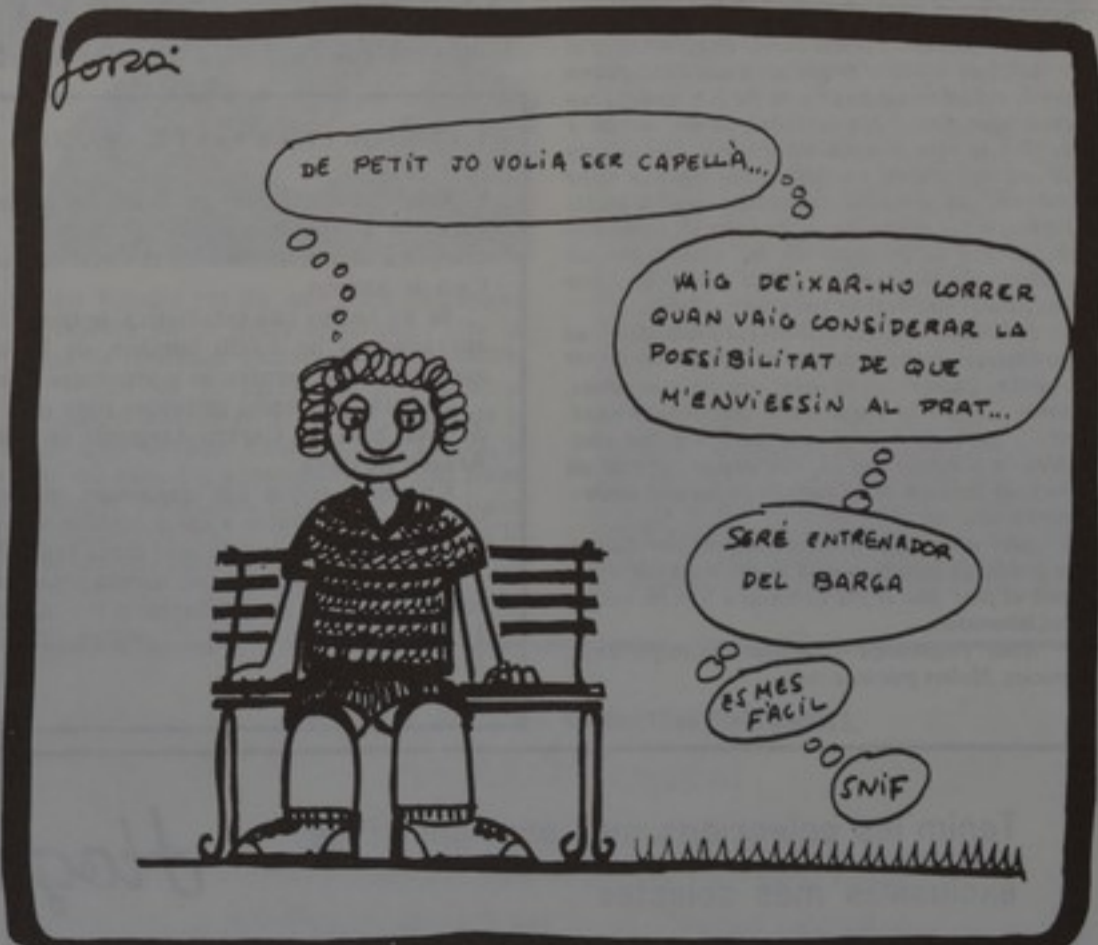 Jorzá
DE PETIT JO VOLIA SER CAPELLÀ...
VAIG DEIXAR-HO CORRER
QUAN VAIG CONSIDERAR LA
POSSIBILITAT DE QUE
M'ENVIESSIN AL PRAT...
SERÉ ENTRENADOR
DEL BARÇA
ES MES
FÀCIL
SNIF